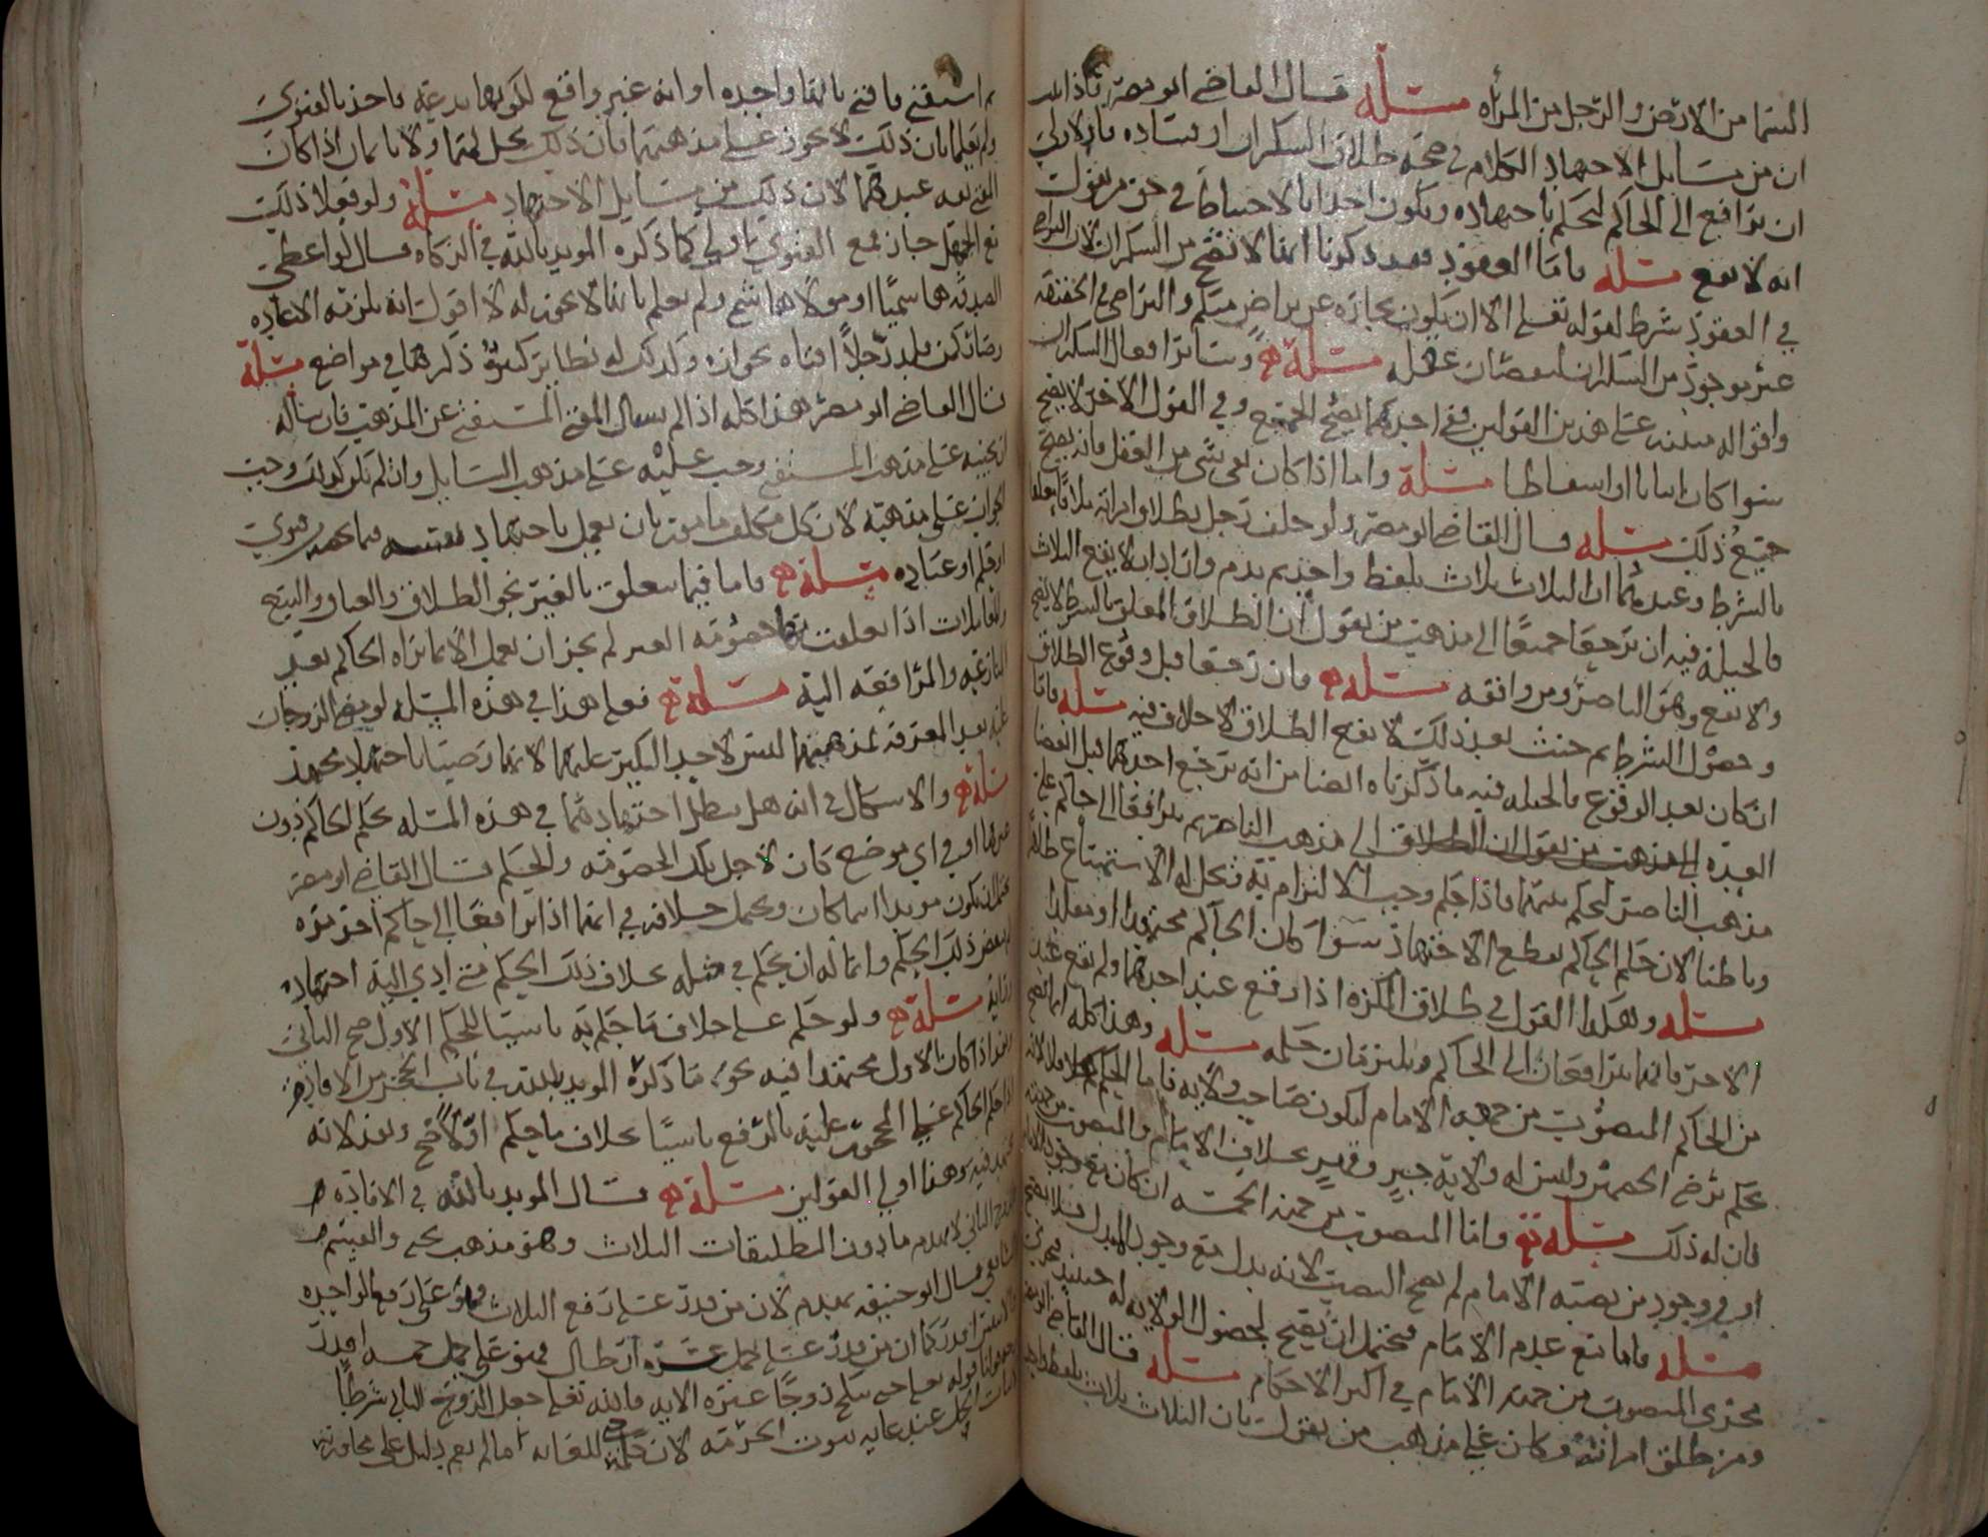 السما من الارض والرجل من المرأه مسئله قال القاضي ابو مضر فاذا
ان من مسايل الاجتهاد الكلام في صحة طلاق السكران او فساده فالاولى
ان ترافع الى الحاكم ليحكم باجتهاده ويكون اخذا بالاحتياط في حق من يقول
انه لا يقع مسئله فاما العقود فقد ذكرنا انها لا تصح من السكران لان التراضي
في العقود شرط لقوله تعالى الا ان يكون تجارة عن تراض منكم والتراضي في الحقيقه
غير موجود من السكران لنقصان عقله مسئلة وسائر افعال السكران
واقواله مبنيه على هذين القولين ففي احدهما يصح الجميع وفي القول الاخر لا يصح
سوا كان اثباتا او اسقاطا مسئلة واما اذا كان بقي شي من العقل فانه يصح
جميع ذلك مسئلة قال القاضي ابو مضر ولو حلف رجل بطلاق امراته ثلاثا
بالشرط وعندهما ان الثلاث ثلاث بلفظ واحد ثم ندم وارادا ان لا يقع الثلاث
فالحيلة فيه ان ترجعا جميعا الى مذهب من يقول ان الطلاق المعلق بالشرط لا يصح
ولا يقع وهو الناصر ومن وافقه مسئله فان رجعا قبل وقوع الطلاق
وحصول الشرط ثم حنث بعد ذلك لا يقع الطلاق لا خلاف فيه مسئله فاما
ان كان بعد الوقوع فالحيله فيه ما ذكرناه ايضا من انه يرجع احدهما قبل انقضا
العدة الى مذهب من يقول ان الطلاق الى مذهب الناصر ثم يترافعا الى حاكم على
مذهب الناصر ليحكم بينهما فاذا حكم وجب الالتزام به وتحل له الاستمتاع ظاهرا
وباطنا لان حكم الحاكم يقطع الاجتهاد سوا كان الحاكم مجتهدا او مقلدا
مسئله وهكذا القول في طلاق المكره اذا وقع عند احدهما ولم يقع عند
الاخر فانهما يترافعان الى الحاكم ويلتزمان حكمه مسئله وهذا كله انما يصح
من الحاكم المنصوب من جهة الامام ليكون صاحب ولايه فاما الحكم فلا
حكم برضى الخصمين وليس له ولاية جبر وقهر بخلاف الامام والمنصوب من جهته
فان له ذلك مسئلة واما المنصوب من جهة الخمسه ان كان مع وجود الامام
او في وجود من نصبه الامام لم يصح النصب لانه بدل مع وجود المبدل فلا يصح
مسئله فاما مع عدم الامام فيحتمل ان يصح لحصول الولايه له حينئذ فجرى
مجرى المنصوب من جهة الامام في اكثر الاحكام مسئله قال القاضي ابو مضر
ومن طلق امراته وكان على مذهب من يقول بان الثلاث ثلاث بلفظ واحد
ثم استفتى فافتي بانها واحده او انه غير واقع لكونها بدعة فاخذ بالفتوى
ولم يعلما بان ذلك لا يجوز على مذهبهما فان ذلك يحل لهما ولا ياثمان اذا كان
المفتي ثقه عندهما لان ذلك من مسايل الاجتهاد مسئلة ولو فعلا ذلك
مع الجهل جاز فمع الفتوى اولى كما ذكره المويد بالله في الزكاه قال لو اعطى
الصدقه هاشميا او مولا هاشمي ولم يعلم بانها لا تجوز له لا اقول انه يلزمه الاعاده
وصار كمن قلد رجلا افتاه بجوازه وكذلك له نظاير كثيرة ذكرها في مواضع مسئلة
قال القاضي ابو مضر هذا كله اذا لم يسال المفتي المستفتي عن المذهب فان ساله
ان يجيبه على مذهب المستفتي وجب عليه على مذهب السايل وان لم يكن كذلك وجب
الجواب على مذهبه لان كل مكلف مامور بان يعمل باجتهاد نفسه فيما يخصه من فتوى
او قلم او عباده مسئلة فاما فيما يتعلق بالغير نحو الطلاق والعتاق والبيع
والمعاملات اذا تعلقت بها خصومه الغير لم يجز ان يعمل الا بما يراه الحاكم بعد
المنازعه والمرافعه اليه مسئلة فعلى هذا في هذه المسئله لو رضي الزوجان
به بعد المعرفه بمذهبهما ليس لاحد النكير عليهما لانهما رضيا باجتهاد مجتهد
مسئلة والاشكال في انه هل يبطل اجتهادهما في هذه المسئله بحكم الحاكم دون
غيرها او في اي موضع كان لاجل تلك الخصومه والحكم قال القاضي ابو مضر
يحتمل ان يكون مويدا اينما كان ويحتمل خلافه في انهما اذا ترافعا الى حاكم اخر مره
لم ينقض ذلك الحكم وانما له ان يحكم في مثله بخلاف ذلك الحكم متى ادى اليه اجتهاده
ورايه مسئلة ولو حكم على خلاف ما حكم به ناسيا للحكم الاول صح الثاني
ونفذ اذا كان الاول مجتهدا فيه نحو ما ذكره المويد بالله في باب الحجر من الافادة
اذا حكم الحاكم على المحجور عليه بالرفع ناسيا بخلاف ما حكم اولا صح ونفذ لانه
مجتهد فيه وهذا اولى القولين مسئلة قال المويد بالله في الافادة
الزوج الثاني لا يهدم ما دون التطليقات الثلاث وهو مذهب يحيى والقسم
والشافعي قال ابو حنيفه يهدم لان من قدر على رفع الثلاث فهو على رفع الواحده
والثنتين اقدر كما ان من قدر على حمل عشرة ارطال فهو على حمل خمسه اقدر
قوله تعالى حتى تنكح زوجا غيره الايه فالله تعالى جعل الزوج الثاني شرطا
الحل عند غايه ثبوت الحرمه لان كلمة حتى للغايه اما لم يقم دليل على مجاوزته